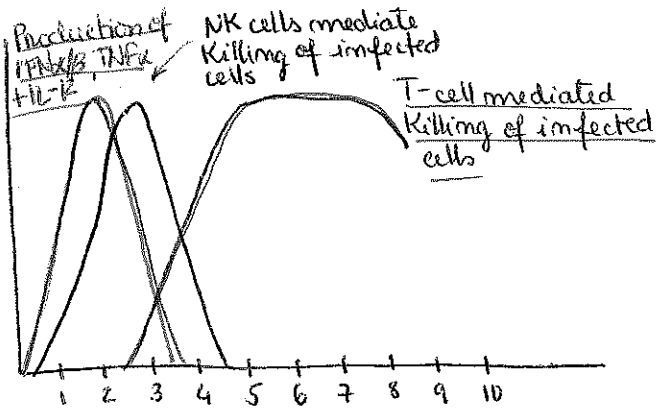 Production of
IFNα/β, TNFα
+IL-12
NK cells mediate
Killing of infected
cells
T-cell mediated
Killing of infected
cells
1 2 3 4 5 6 7 8 9 10